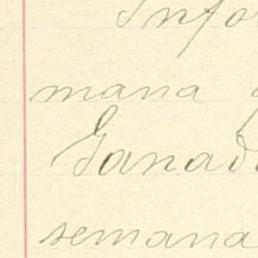 Info
mana
Ganad
semana